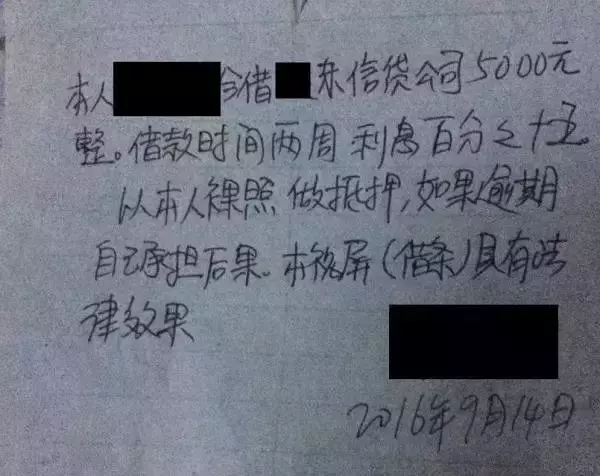 本人 今借 东信贷公司5000元
整。借款时间两周 利息百分之十五。
以本人裸照 做抵押,如果逾期
自己承担后果。本视屏(借条)具有法
律效果
2016年9月14日